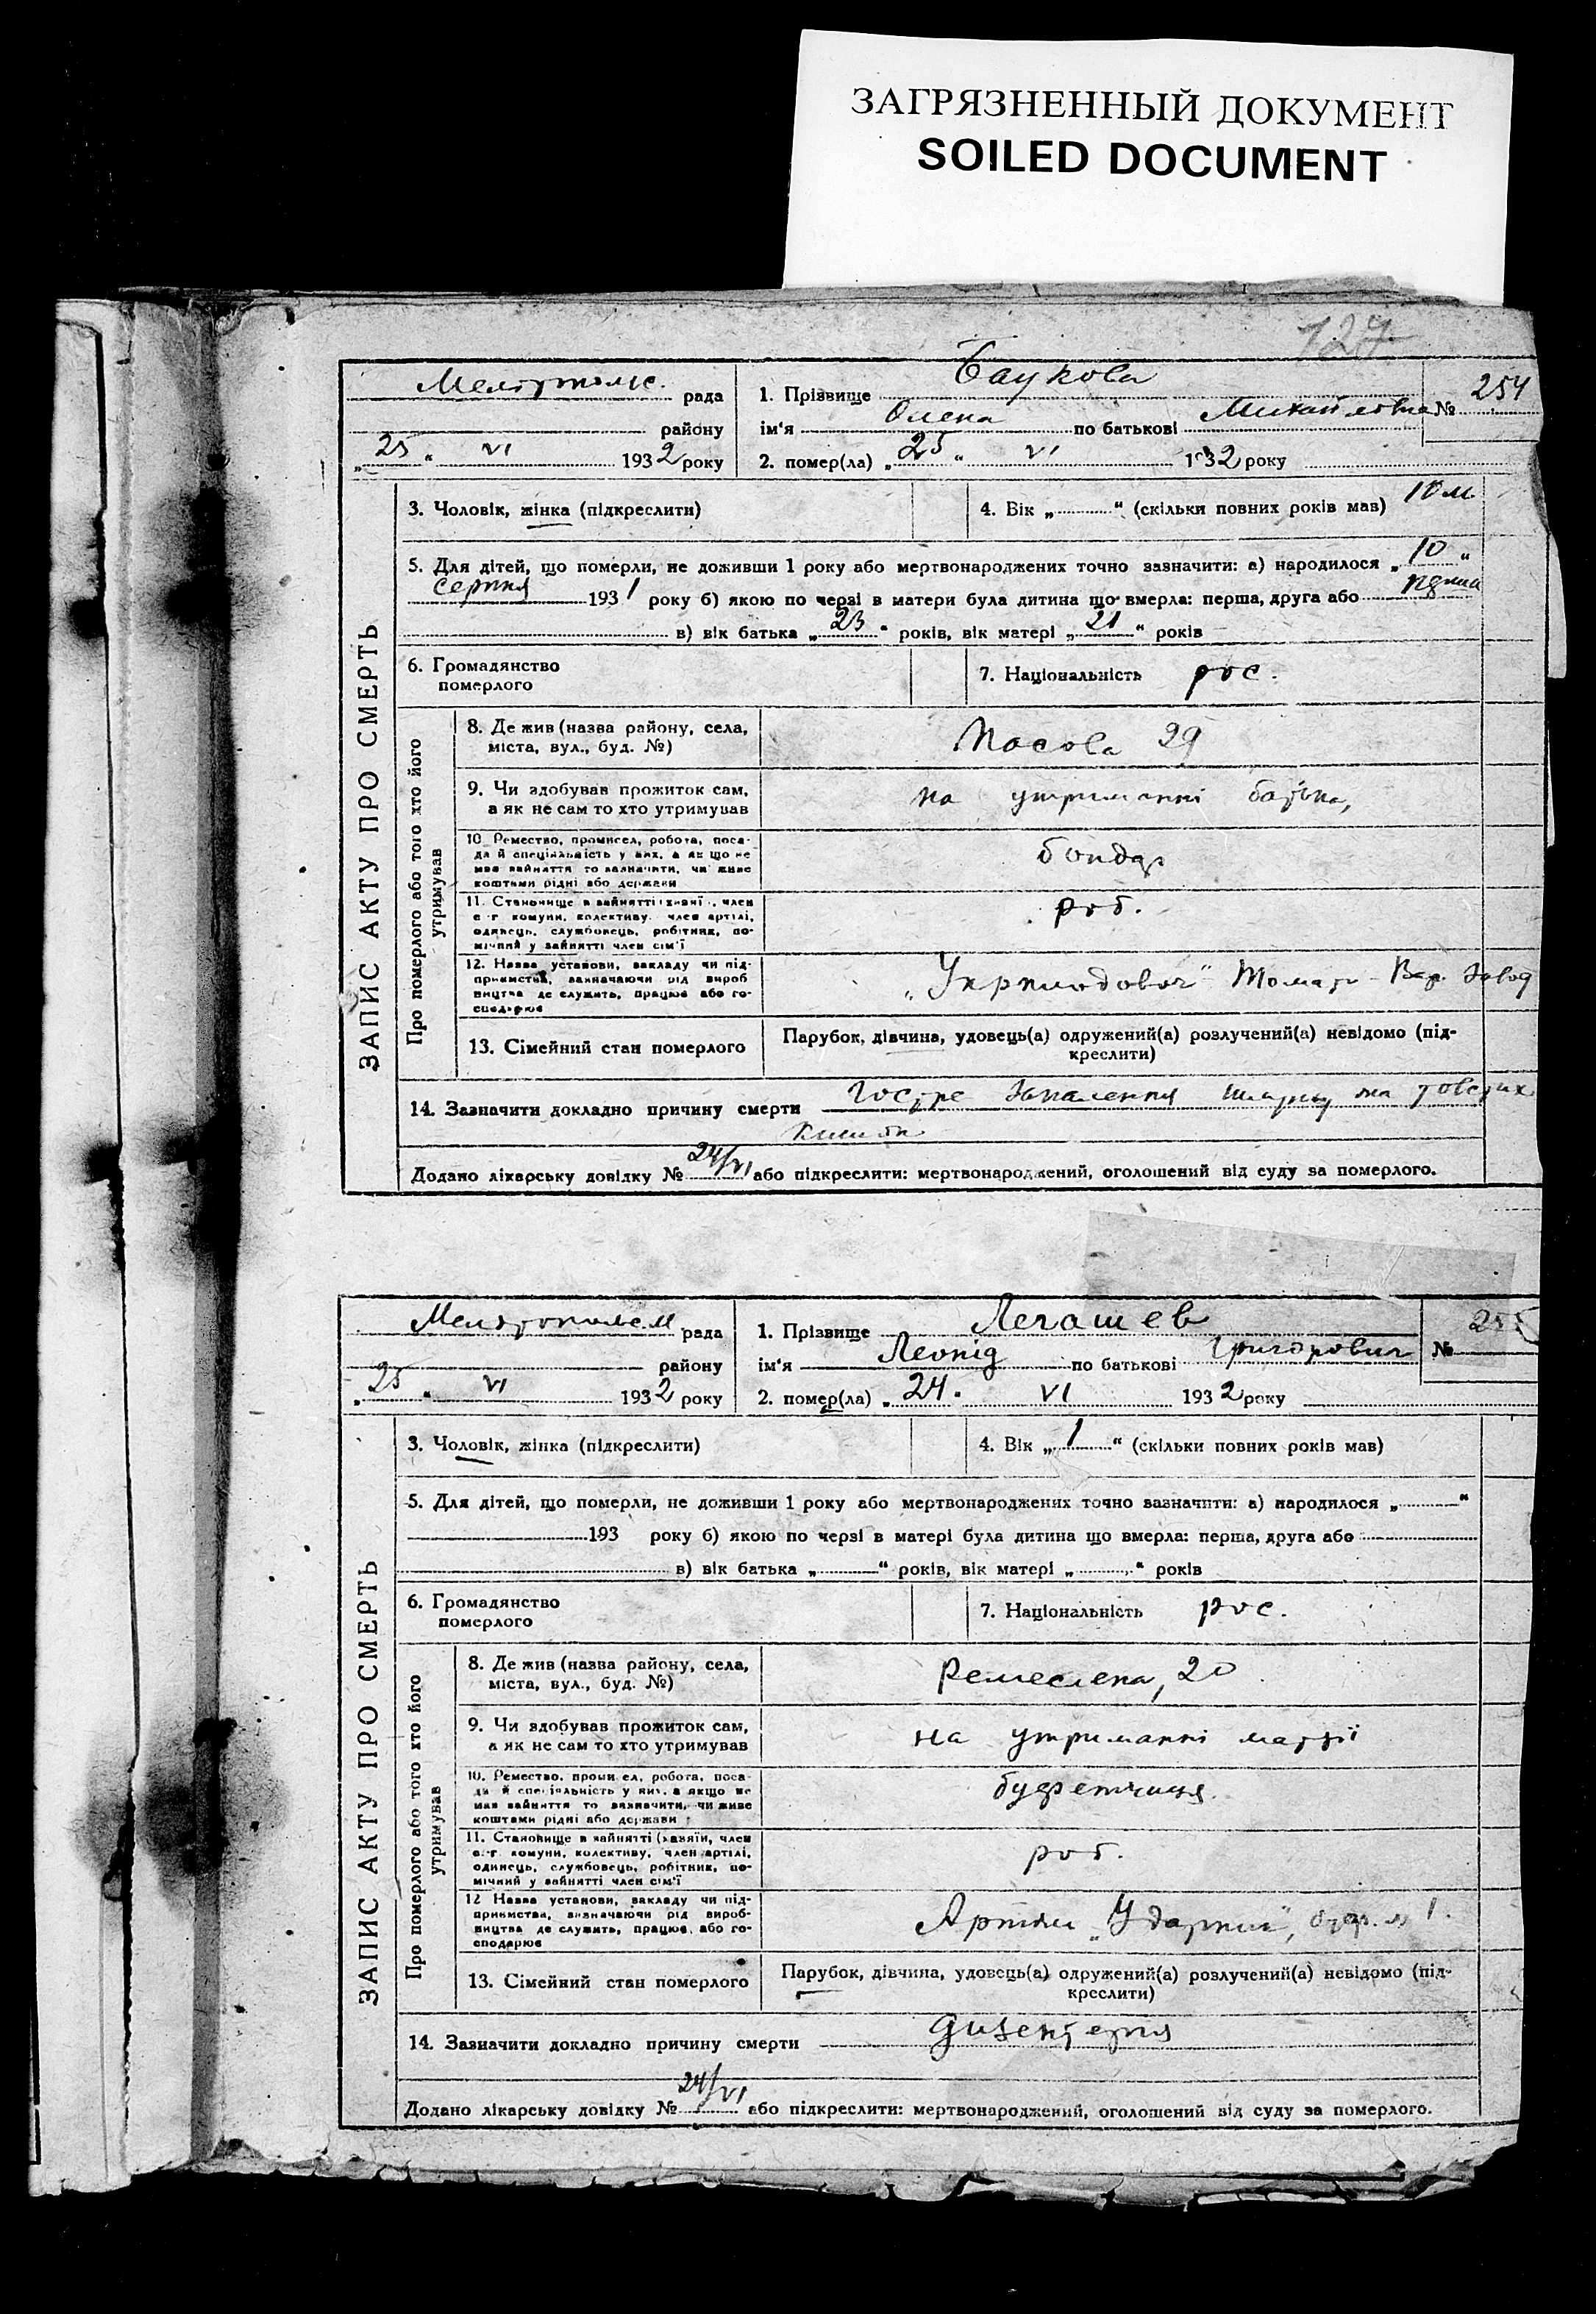 ЗАГРЯЗНЕННЫЙ ДОКУМЕНТ
SOILED DOCUMENT
127
рада
1. Прізвище Баукова
№ 254
району
ім‘я Олена по батькові Михайлівна
„25“ VI 1932 року
2. помер(ла) „25“ VI 1932 року
ЗАПИС АКТУ ПРО СМЕРТЬ
3. Чоловік, жінка (підкреслити)
4. Вік „ “ (скільки повних років мав) 10 м
5. Для дітей, що померли, не доживши 1 року або мертвонароджених точно зазначити: а) народилося „10“
серпня 1931 року б) якою по черзі в матери була дитина що вмерла: перша, друга або
в) вік батька „23“ років, вік матері „21“ років
6. Громадянство
померлого
7. Національність рос.
Про померлого або того хто його
утримував
8. Де жив (назва району, села,
міста, вул., буд. №)
29
9. Чи здобував прожиток сам,
а як не сам то хто утримував
на утриманні батька,
10. Ремество, промисел, робота, поса-
да й спеціяльність у них, а як що не
мав зайняття то зазначити, чи живе
коштами рідні або держави
бондар
11. Становище в зайнятті член
с.-г. комуни, колективу, член артілі,
одинець, службовець, робітник, по-
мічний у зайнятті член сім'ї
роб.
12. Назва установи, закладу чи під-
приємства, зазначаючи рід вироб-
ництва де служить, працює або го-
сподарює
„Укрплодовоч“ Томато - Вар. Завод
13. Сімейний стан померлого
Парубок, дівчина, удовець(а) одружений(а) розлучений(а) невідомо (під-
креслити)
14. Зазначити докладно причину смерти Гостре запалення шлунку та товстих
кишок
Додано лікарську довідку № 24/VI або підкреслити: мертвонароджений, оголошений від суду за померлого.
рада
1. Прізвище Легашев
№ 255
району
ім‘я Леонід по батькові Григорович
„25“ VI 1932 року
2. помер(ла) „24“ VI 1932 року
ЗАПИС АКТУ ПРО СМЕРТЬ
3. Чоловік, жінка (підкреслити)
4. Вік „1“ (скільки повних років мав)
5. Для дітей, що померли, не доживши 1 року або мертвонароджених точно зазначити: а) народилося „ “
193 року б) якою по черзі в матері була дитина що вмерла: перша, друга або
в) вік батька „ “ років, вік матері „ “ років
6. Громадянство
померлого
7. Національність рос.
Про померлого або того хто його
утримував
8. Де жив (назва району, села,
міста, вул., буд. №)
Ремеслена, 20
9. Чи здобував прожиток сам,
а як не сам то хто утримував
на утриманні матері
10. Ремество, промисел, робота, поса-
да й спеціяльність у них, а якщо не
мав зайняття то зазначити, чи живе
коштами рідні або держави
буфетчиця
11. Становище в зайнятті (хазяїн, член
с.-г. комуни, колективу, член артілі,
одинець, службовець, робітник, по-
мічний у зайнятті член сім'ї
роб.
12 Назва установи, закладу чи під-
приємства, зазначаючи рід вироб-
ництва де служить, працює, або го-
сподарює
Артіль „Ударник“, буф. № 1.
13. Сімейний стан померлого
Парубок, дівчина, удовець(а) одружений(а) розлучений(а) невідомо (під-
креслити)
14. Зазначити докладно причину смерти дизентерія
Додано лікарську довідку № 24/VI або підкреслити: мертвонароджений, оголошений від суду за померлого.